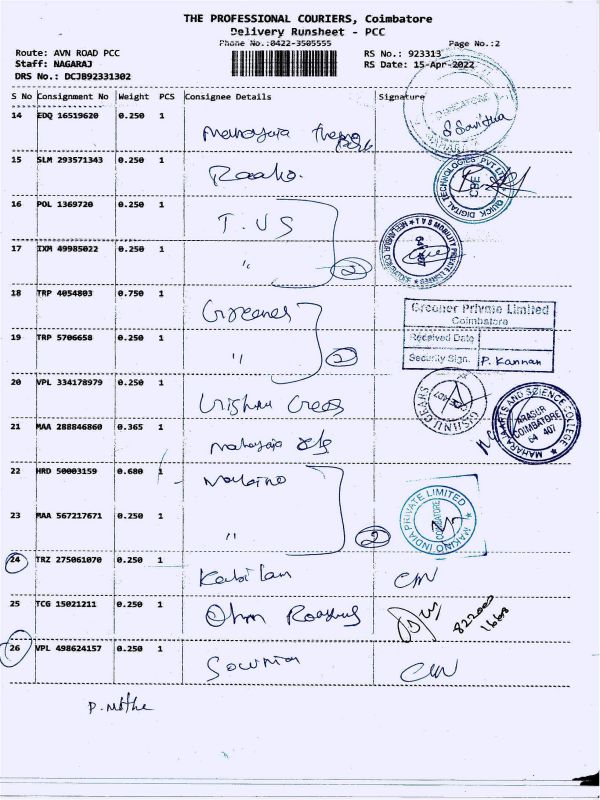 THE PROFESSIONAL COURIERS, Coimbatore
Delivery Runsheet - PCC
Phone No.:0422-3505555
Page No.:2
Route: AVN ROAD PCC
RS No.: 923313
Staff: NAGARAJ
RS Date: 15-Apr-2022
DRS No.: DCJB92331302
S No Consignment No Weight PCS Consignee Details Signature
14 EDQ 16519620 0.250 1
S Savitha
15 SLM 293571343 0.250 1
QUICK DIGITAL TECHNOLOGIES PVT LTD
CBE
16 POL 1369720 0.250 1 T.VS
17 IXM 49985022 0.250 1 " 2
18 TRP 4054803 0.750 1
Greener Private Limited
Coimbatore
19 TRP 5706658 0.250 1 " 2
Received Date
Security Sign. P. Kannan
20 VPL 334178979 0.250 1
VISHNU GEARS
21 MAA 288846860 0.365 1
MAHARAJA ARTS AND SCIENCE COLLEGE
ARASUR
COIMBATORE
641 407
22 HRD 50003159 0.680 1 Makino
MAKINO INDIA PRIVATE LIMITED
COIMBATORE
23 MAA 567217671 0.250 1 " 2
24 TRZ 275061070 0.250 1 Kabilan
25 TCG 15021211 0.250 1 Ohm
26 VPL 498624157 0.250 1